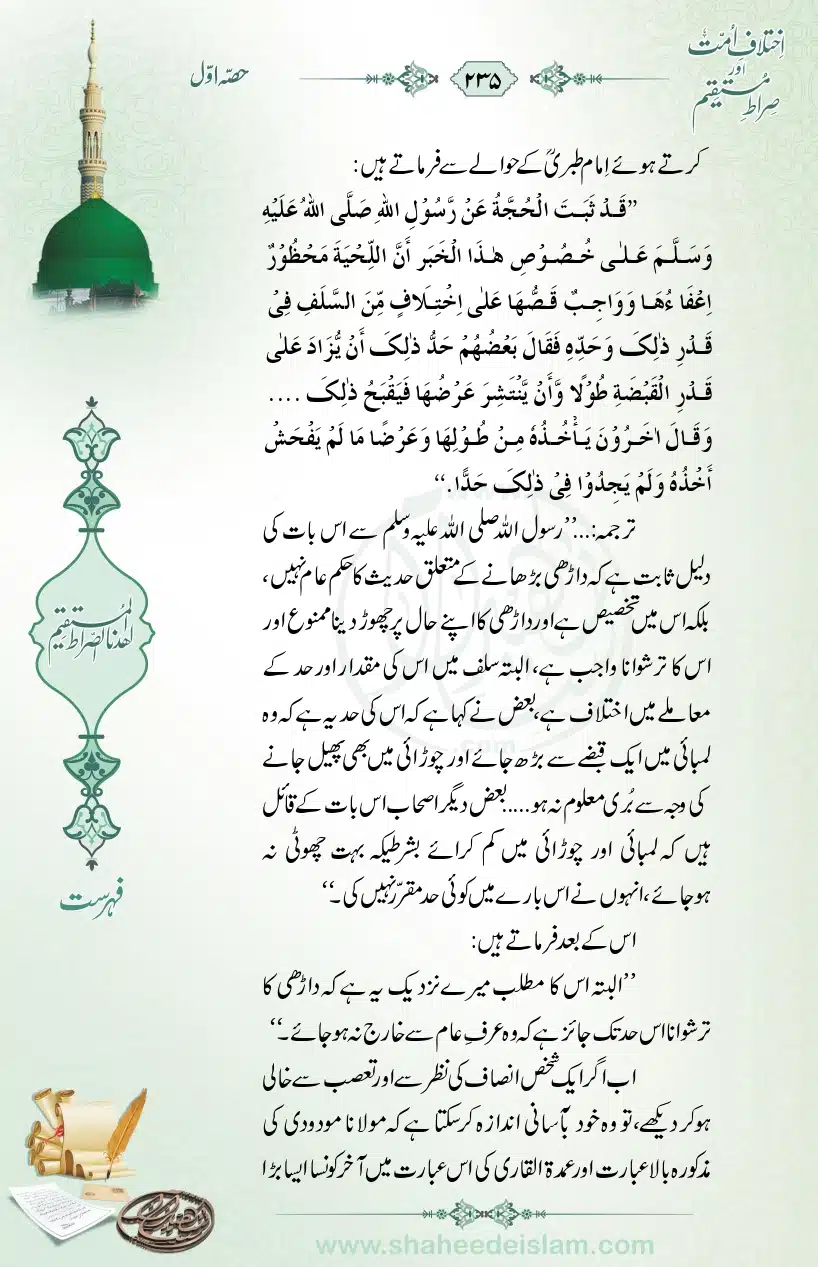 اِختلافِ اُمت
اور
صراطِ مستقیم
۲۳۵
حصّہ اوّل
کرتے ہوئے اِمام طبریؒ کے حوالے سے فرماتے ہیں:
”قَدْ ثَبَتَ الْحُجَّةُ عَنْ رَّسُوْلِ اللهِ صَلَّى اللهُ عَلَيْهِ
وَسَلَّمَ عَلٰى خُصُوْصِ هٰذَا الْخَبَر أَنَّ اللِّحْيَةَ مَحْظُوْرٌ
اِعْفَاءُهَا وَوَاجِبٌ قَصُّهَا عَلٰى اِخْتِلَافٍ مِّنَ السَّلَفِ فِىْ
قَدْرِ ذٰلِكَ وَحَدِّهٖ فَقَالَ بَعْضُهُمْ حَدُّ ذٰلِكَ أَنْ يُّزَادَ عَلٰى
قَدْرِ الْقَبْضَةِ طُوْلًا وَّأَنْ يَّنْتَشِرَ عَرْضُهَا فَيَقْبَحُ ذٰلِكَ ....
وَقَالَ اٰخَرُوْنَ يَأْخُذُهٗ مِنْ طُوْلِهَا وَعَرْضًا مَا لَمْ يَفْحَشْ
أَخْذُهُ وَلَمْ يَجِدُوْا فِىْ ذٰلِكَ حَدًّا.“
ترجمہ:...’’رسول اللہ صلی اللہ علیہ وسلم سے اس بات کی
دلیل ثابت ہے کہ داڑھی بڑھانے کے متعلق حدیث کا حکم عام نہیں،
بلکہ اس میں تخصیص ہے اور داڑھی کا اپنے حال پر چھوڑ دینا ممنوع اور
اس کا ترشوانا واجب ہے، البتہ سلف میں اس کی مقدار اور حد کے
معاملے میں اختلاف ہے، بعض نے کہا ہے کہ اس کی حد یہ ہے کہ وہ
لمبائی میں ایک قبضے سے بڑھ جائے اور چوڑائی میں بھی پھیل جانے
کی وجہ سے بُری معلوم نہ ہو.....بعض دیگر اصحاب اس بات کے قائل
ہیں کہ لمبائی اور چوڑائی میں کم کرائے بشرطیکہ بہت چھوٹی نہ
ہوجائے، انہوں نے اس بارے میں کوئی حد مقرّر نہیں کی۔‘‘
اس کے بعد فرماتے ہیں:
’’البتہ اس کا مطلب میرے نزدیک یہ ہے کہ داڑھی کا
ترشوانا اس حد تک جائز ہے کہ وہ عرفِ عام سے خارج نہ ہوجائے۔‘‘
اب اگر ایک شخص انصاف کی نظر سے اور تعصب سے خالی
ہوکر دیکھے، تو وہ خود بآسانی اندازہ کرسکتا ہے کہ مولانا مودودی کی
مذکورہ بالا عبارت اور عمدۃ القاری کی اس عبارت میں آخر کونسا ایسا بڑا
اِھدنا الصّراط المُستقیم
فہرست
www.shaheedeislam.com